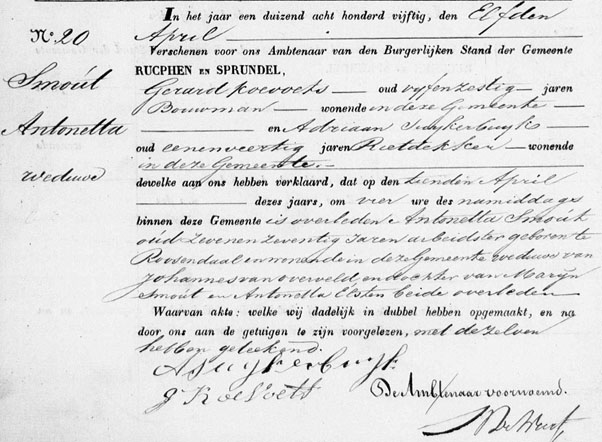 In het jaar een duizend acht honderd vijftig, den Elfden
No. 20
April
Verschenen voor ons Ambtenaar van den Burgerlijken Stand der Gemeente
RUCPHEN EN SPRUNDEL,
Smout
Gerard Koevoets oud vyfenzestig jaren
Bouwman wonende in deze Gemeente
Antonetta
en Adriaan Suykerbuyk
oud eenenveertig jaren Rietdekker wonende
in deze Gemeente
weduwe
dewelke aan ons hebben verklaard, dat op den tienden April
dezes jaars, om vier ure des namiddags
binnen deze Gemeente is overleden Antonetta Smout
oud Zevenenzeventig Jaren arbeidster geboren te
Roosendaal en wonende in deze Gemeente weduwe van
Johannes van overveld en dochter van Maryn
Smout en Antonetta Elsten beide overleden
Waarvan akte: welke wij dadelijk in dubbel hebben opgemaakt, en na
door ons aan de getuigen te zijn voorgelezen, met dezelven
hebben geteekend.
A Suykerbuyk
G Koevoets
De Ambtenaar voornoemd.